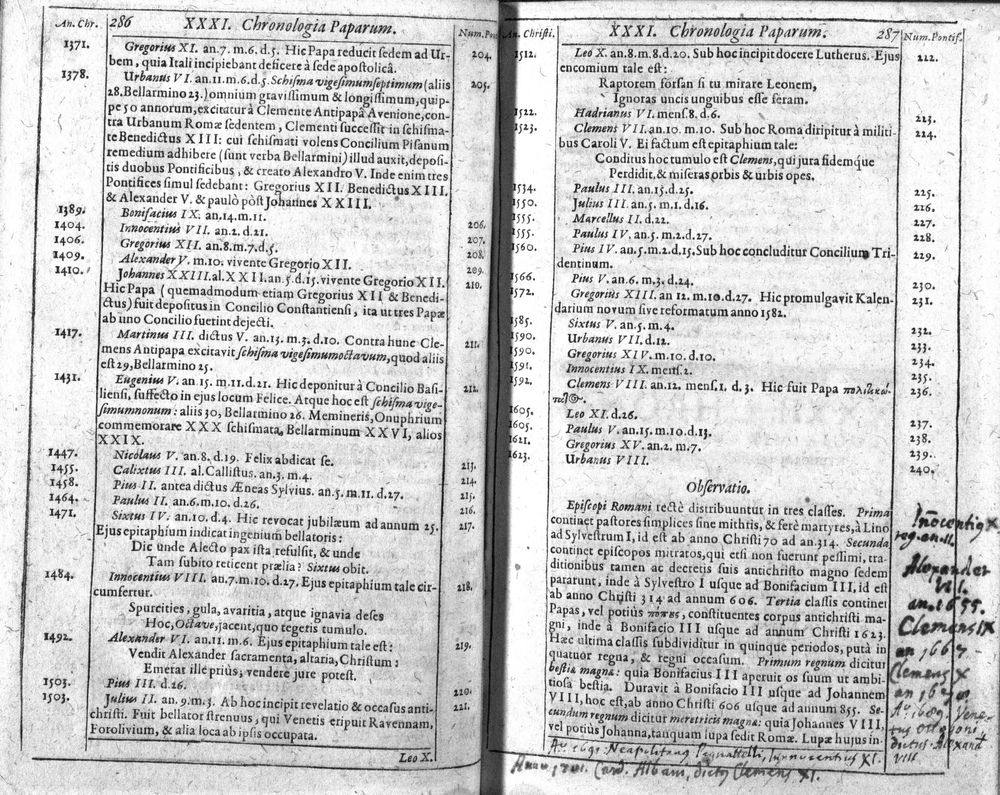 An. Chr. 286 XXXI. Chronologia Paparum. Num. Pon
1371. Gregorius XI. an. 7. m. 6. d. 5. Hic Papa reducit sedem ad Ur- 204.
bem, quia Itali incipiebant deficere à sede apostolicâ.
1378. Urbanus VI. an. 11. m. 6. d. 5. Schisma vigesimumseptimum (aliis 205.
28. Bellarmino 23.) omnium gravissimum & longissimum, quip-
pe 50 annorum, excitatur à Clemente Antipapâ Avenione, con-
tra Urbanum Romæ sedentem, Clementi successit in schisma-
te Benedictus XIII: cui schismati volens Concilium Pisanum
remedium adhibere (sunt verba Bellarmini) illud auxit, deposi-
tis duobus Pontificibus, & creato Alexandro V. Inde enim tres
Pontifices simul sedebant: Gregorius XII. Benedictus XIII.
& Alexander V. & paulò pòst Johannes XXIII.
1389. Bonifacius IX. an. 14. m. 11.
1404. Innocentius VII. an. 2. d. 21. 206.
1406. Gregorius XII. an. 8. m. 7. d. 5. 207.
1409. Alexander V. m. 10. vivente Gregorio XII. 208.
1410. Johannes XXIII. al. XXII. an. 5. d. 15. vivente Gregorio XII. 209.
Hic Papa (quemadmodum etiam Gregorius XII & Benedi- 210.
ctus) fuit depositus in Concilio Constantiensi, ita ut tres Papæ
ab uno Concilio fuerint dejecti.
1417. Martinus III. dictus V. an. 13. m. 3. d. 10. Contra hunc Cle- 211.
mens Antipapa excitavit schisma vigesimumoctavum, quod aliis
est 29, Bellarmino 25.
1431. Eugenius V. an. 15. m. 11. d. 21. Hic deponitur à Concilio Basi- 212.
liensi, suffecto in ejus locum Felice. Atque hoc est schisma vige-
simumnonum: aliis 30, Bellarmino 26. Memineris, Onuphrium
commemorare XXX schismata, Bellarminum XXVI, alios
XXIX.
1447. Nicolaus V. an. 8. d. 19. Felix abdicat se. 213.
1455. Calixtus III. al. Callistus. an. 3. m. 4. 214.
1458. Pius II. antea dictus Æneas Sylvius. an. 5. m. 11. d. 27. 215.
1464. Paulus II. an. 6. m. 10. d. 26. 216.
1471. Sixtus IV. an. 10. d. 4. Hic revocat jubilæum ad annum 25. 217.
Ejus epitaphium indicat ingenium bellatoris:
Dic unde Alecto pax ista refulsit, & unde
Tam subito reticent prælia? Sixtus obit.
1484. Innocentius VIII. an. 7. m. 10. d. 27. Ejus epitaphium tale cir- 218.
cumfertur.
Spurcities, gula, avaritia, atque ignavia deses
Hoc, Octave, jacent, quo tegeris tumulo.
1492. Alexander VI. an. 11. m. 6. Ejus epitaphium tale est: 219.
Vendit Alexander sacramenta, altaria, Christum:
Emerat ille priùs, vendere jure potest.
1503. Pius III. d. 26. 220.
1503. Julius II. an. 9. m. 3. Ab hoc incipit revelatio & occasus anti- 221.
christi. Fuit bellator strenuus, qui Venetis eripuit Ravennam,
Forolivium, & alia loca ab ipsis occupata.
Leo X.
An. Christi. XXXI. Chronologia Paparum. 287 Num. Pontif.
1512. Leo X. an. 8. m. 8. d. 20. Sub hoc incipit docere Lutherus. Ejus 222.
encomium tale est:
Raptorem forsan si tu mirare Leonem,
Ignoras uncis unguibus esse feram.
1522. Hadrianus VI. mens. 8. d. 6. 223.
1523. Clemens VII. an. 10. m. 10. Sub hoc Roma diripitur à militi- 224.
bus Caroli V. Ei factum est epitaphium tale:
Conditus hoc tumulo est Clemens, qui jura fidemque
Perdidit, & miseras orbis & urbis opes.
1534. Paulus III. an. 15. d. 25. 225.
1550. Julius III. an. 5. m. 1. d. 16. 226.
1555. Marcellus II. d. 22. 227.
1555. Paulus IV. an. 5. m. 2. d. 27. 228.
1560. Pius IV. an. 5. m. 2. d. 15. Sub hoc concluditur Concilium Tri- 229.
dentinum.
1566. Pius V. an. 6. m. 3. d. 24. 230.
1572. Gregorius XIII. an 12. m. 10. d. 27. Hic promulgavit Kalen- 231.
darium novum sive reformatum anno 1582.
1585. Sixtus V. an. 5. m. 4. 232.
1590. Urbanus VII. d. 12. 233.
1590. Gregorius XIV. m. 10. d. 10. 234.
1591. Innocentius IX. mens. 2. 235.
1592. Clemens VIII. an. 12. mens. 1. d. 3. Hic fuit Papa πολιτικώ- 236.
τατος.
1605. Leo XI. d. 26. 237.
1605. Paulus V. an. 15. m. 10. d. 13. 238.
1621. Gregorius XV. an. 2. m. 7. 239.
1623. Urbanus VIII. 240.
Observatio.
Episcopi Romani rectè distribuuntur in tres classes. Prima
continet pastores simplices sine mithris, & ferè martyres, à Lino
ad Sylvestrum I, id est ab anno Christi 70 ad an. 314. Secunda
continet episcopos mitratos, qui etsi non fuerunt pessimi, tra-
ditionibus tamen ac decretis suis antichristo magno sedem
pararunt, inde à Sylvestro I usque ad Bonifacium III, id est
ab anno Christi 314 ad annum 606. Tertia classis continet
Papas, vel potiùs πόπες, constituentes corpus antichristi ma-
gni, inde à Bonifacio III usque ad annum Christi 1623.
Hæc ultima classis subdividitur in quinque periodos, putà in
quatuor regna, & regni occasum. Primum regnum dicitur
bestia magna: quia Bonifacius III aperuit os suum ut ambi-
tiosa bestia. Duravit à Bonifacio III usque ad Johannem
VIII, hoc est, ab anno Christi 606 usque ad annum 855. Se-
cundum regnum dicitur meretricis magna: quia Johannes VIII,
vel potiùs Johanna, tanquam lupa sedit Romæ. Lupæ hujus in-
Innocentius X
reg. an. 11.
Alexander
VII.
an. 1655.
Clemens IX
an 1667.
Clemens X
an
Ao. 1689. Vene-
tus Ottoboni
dictus Alexand
VIII
Ao. 1691. Neapolitanus Pignattelli, Innocentius XI.
Anno 1701. Card. Albani, dictus Clemens XI.